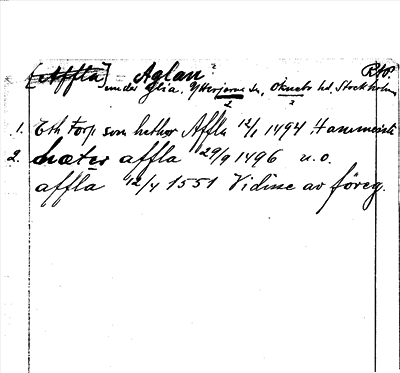 [Affla] Aglan? RAP.
under Glia, Ytterjärna sn, Öknebo hd, Stockholm
1. Eth torp som hether Affla 12/1 1494
2. hæter affla 29/9 1496 u.o.
affla 12/4 1551 Vidisse av föreg.